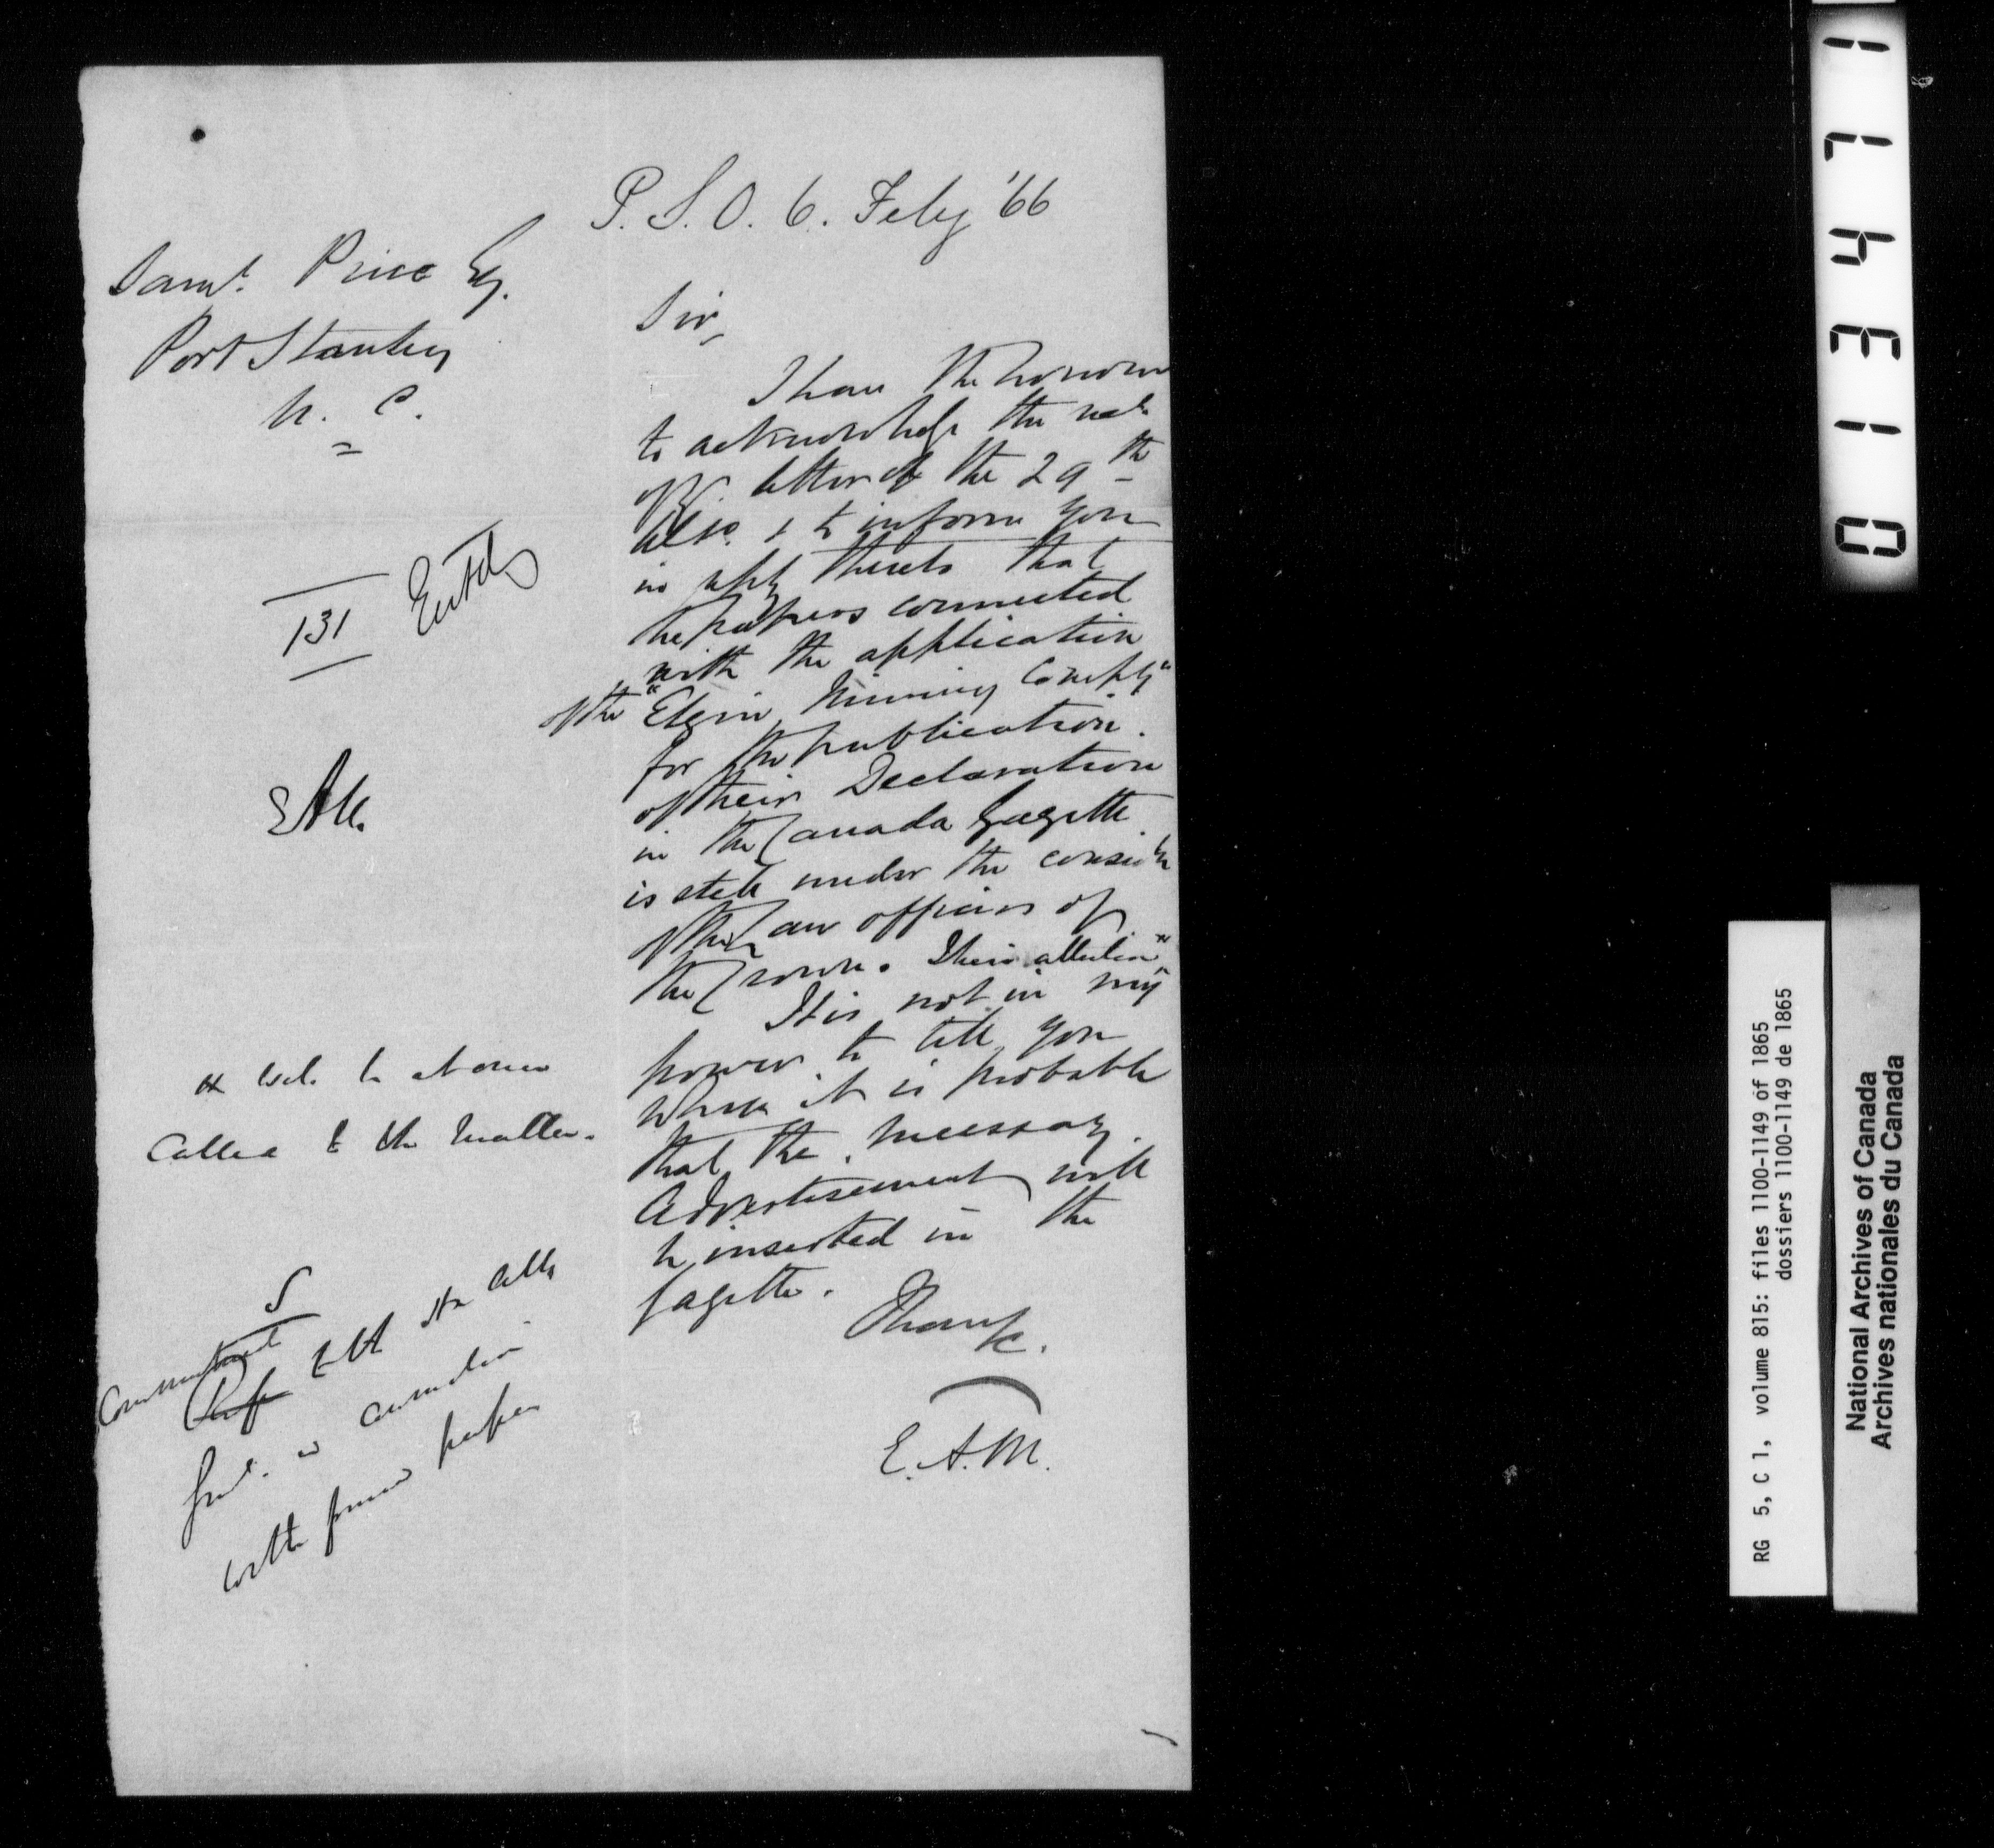 P.S.O. 6. Feby '66
Saml. Price Esq.
Port Stanley
U. C.
131
EAM.
Sir,
I have the honour
to acknowledge the rect
of yr. letter of the 29th
ulto. & to inform you
in reply thereto that
the papers connected
with the application
of the "Elgin Mining Compy"
for the publication
of their Declaration
in the Canada Gazette
is still under the consid
of the Law officers of
the Crown. Their attention x
x will be at once
called to the matter.
It is not in my
power to tell you
when it is probable
that the necessary
Advertisement will
be inserted in the
Gazette.
E.A.M.
with former papers
011347 1
RG 5, C 1, volume 815: files 1100-1149 of 1865
dossiers 1100-1149 de 1865
National Archives of Canada
Archives nationales du Canada